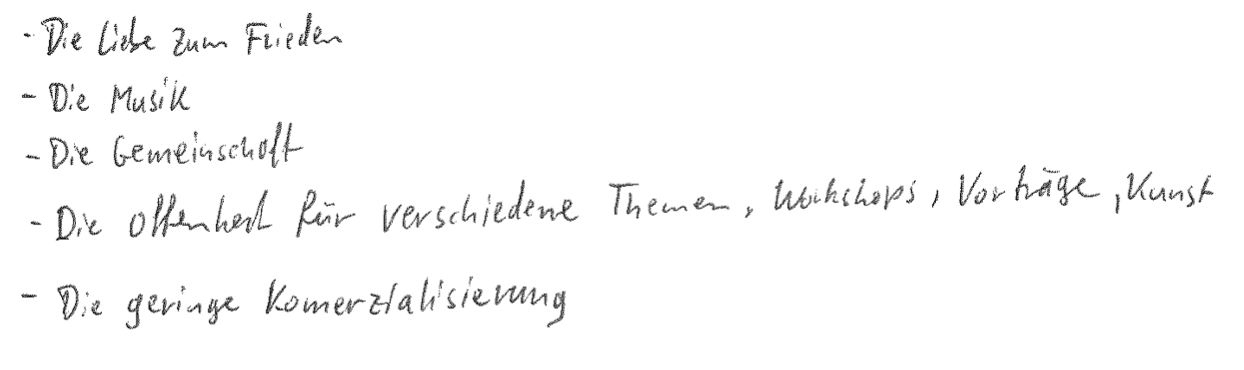 - Die Liebe zum Frieden
- Die Musik
- Die Gemeinschaft
- Die Offenheit für verschiedene Themen, Workshops, Vorträge, Kunst
- Die geringe Komerzialisierung